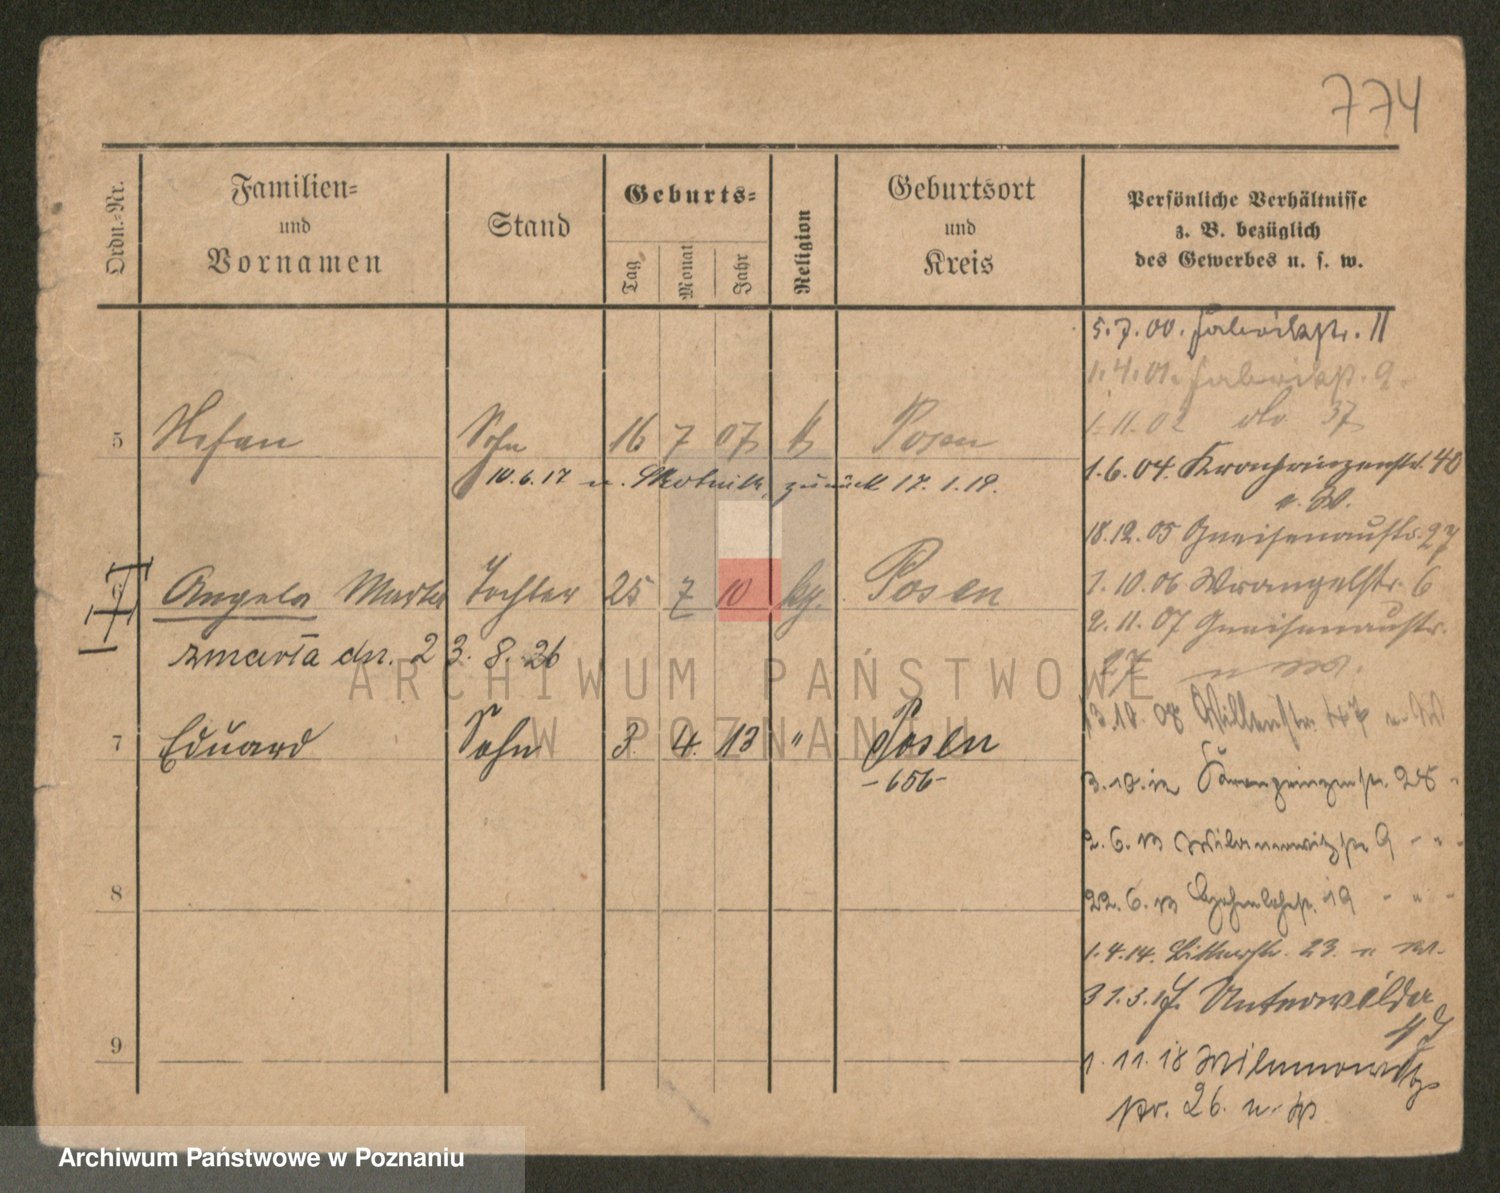 774
Ordn.-Nr.
Familien-
und
Vornamen
Stand
Geburts-
Tag
Monat
Jahr
Religion
Geburtsort
und
Kreis
Persönliche Verhältnisse
z. B. bezüglich
des Gewerbes u. s. w.
5 Stefan Sohn 16 7 07 k Posen
10.6.17 n. Skotnik, zurück 17.1.18.
6 Angela Marta Tochter 25 7 10 kg. Posen
zmarła dn. 23. 8. 26
7 Eduard Sohn 3. 4. 13 " Posen
-656-
8
9
5.7.00. Fabrikstr. 11
1.4.01. Fabrikst. 9.
1.11.02 do 37
1.6.04. Kronprinzenstr. 40
u. W.
18.12.05 Gneisenaustr. 27
1.10.06 Wrangelstr. 6
2.11.07 Gneisenaustr.
27
13.10.08
3.10.12 Kronprinzenstr. 28 "
2.6.13 Wilamowitzstr 9 - " -
22.6.13 19 - " -
1.4.14. Bitterstr. 23.
31.3.17. Unterwilda
47
1.11.18 Wilamowitz
str. 26.
ARCHIWUM PAŃSTWOWE
W POZNANIU
Archiwum Państwowe w Poznaniu